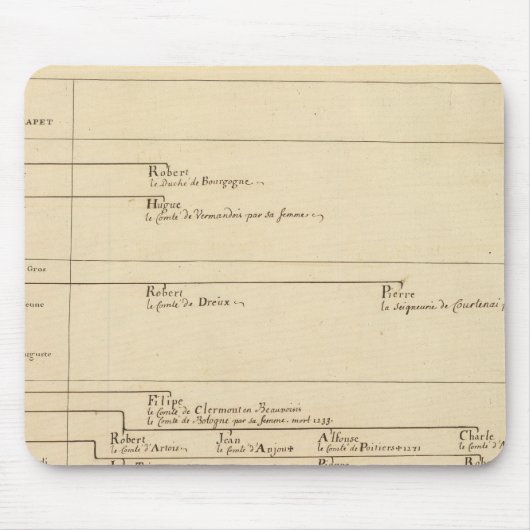 APET
Robert
le Duché de Bourgogne
Hugue
le Comté de Vermandois par sa femme
Gros
Robert
le Comté de Dreüx
Pierre
la Seigneurie de Courtenai
eune
uguste
Filipe
le Comté de Clermont en Beauvoisis
le Comté de Bologne par sa femme. mort 1233.
Robert Jean Alfonse Charle
le Comté d'Artois le Comté d'Anjou le Comté de Poitiers + 1271 le Comté d'A
di